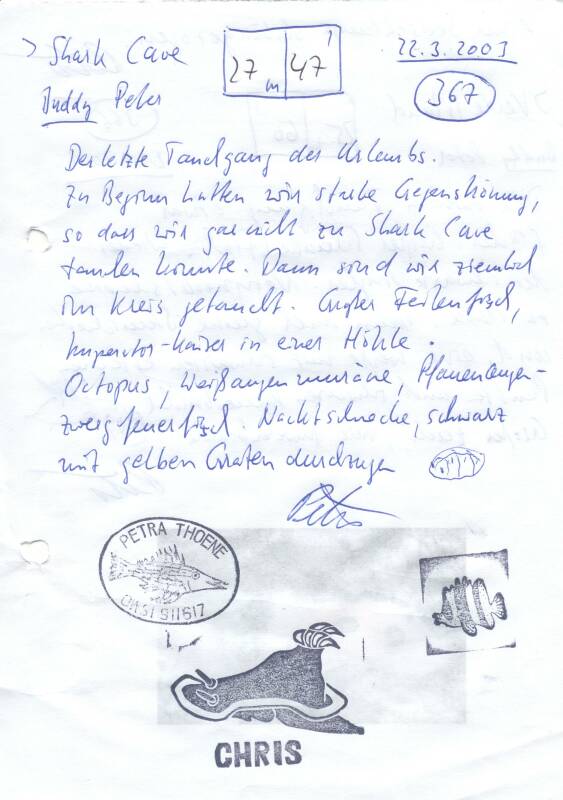 > Shark Cave
27 m 47'
22.3.2003
Buddy Peter
367
Der letzte Tauchgang des Urlaubs.
Zu Beginn hatten wir starke Gegenströmung,
so dass wir gar nicht zu Shark Cave
tauchen konnte. Dann sind wir ziemlich
im Kreis getaucht. Großer Feilenfisch,
Imperator-Kaiser in einer Höhle.
Octopus, Weißaugenmuräne, Pfauenaugen-
zwergfeuerfisch. Nacktschnecke, schwarz
mit gelben Graten durchzogen
Petra
PETRA THOENE
CHRIS